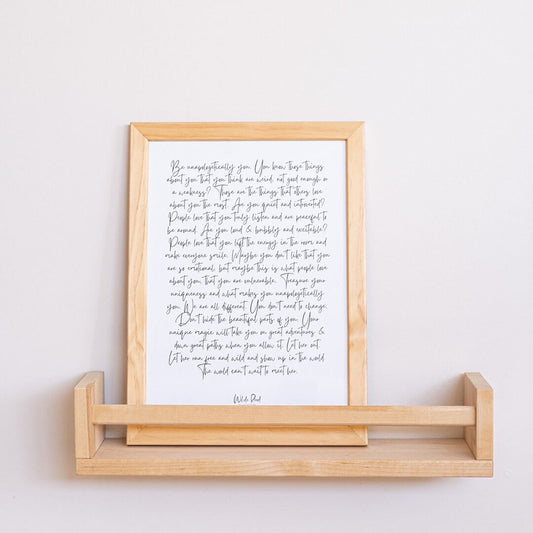 Be unapologetically you. You know those things
about you that you think are weird, not good enough or
a weakness? Those are the things that others love
about you the most. Are you quiet and introverted?
People love that you truly listen and are peaceful to
be around. Are you loud & bubbly and excitable?
People love that you lift the energy in the room and
make everyone smile. Maybe you don't like that you
are so emotional, but maybe this is what people love
about you, that you are vulnerable. Treasure your
uniqueness and what makes you unapologetically
you. We are all different. You don't need to change.
Don't hide the beautiful parts of you. Your
unique magic will take you on great adventures &
down great paths when you allow it. Let her out.
Let her run free and wild and show up in the world.
The world can't wait to meet her.